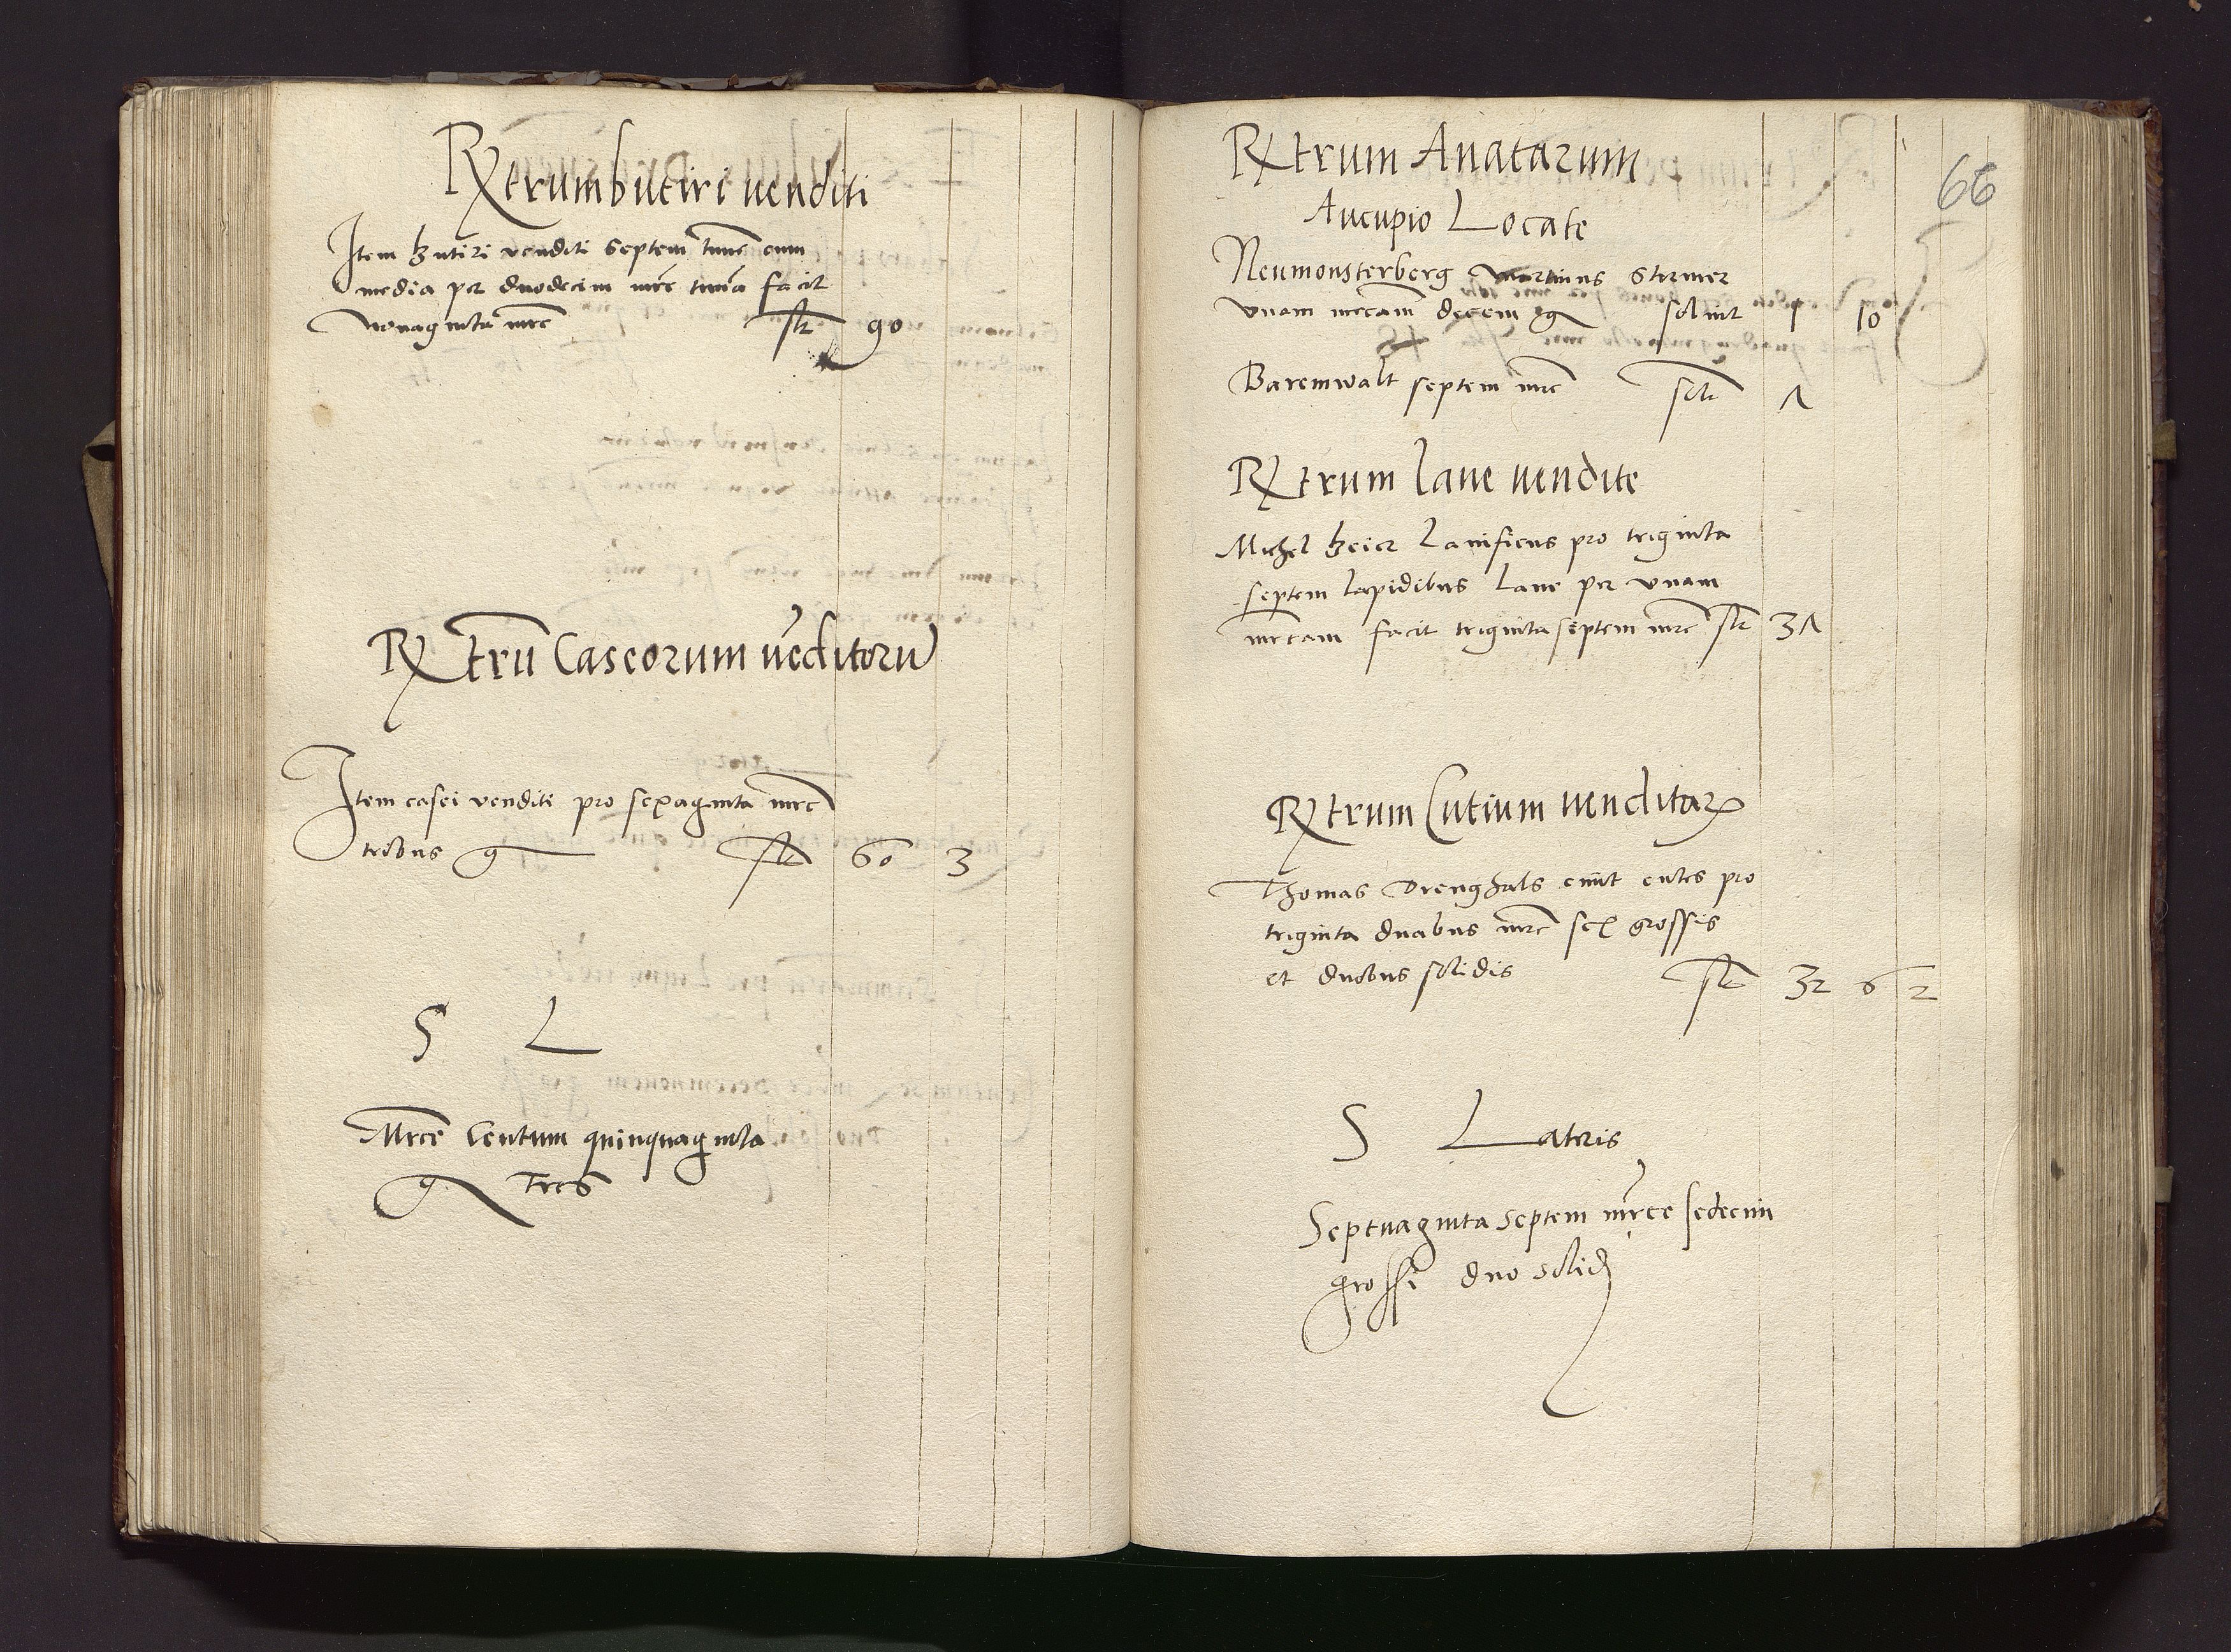 Rx trum butiri venditi
Item butiri venditi septem tunnē cum
media per duodecim mrc tunna facit
nonaginta mrc fl 90
Rx trū Caseorum vēditorū
Item casei venditi pro sexaginta mrc
tribus g fl 60 3
S L
Mrce Centum quinquaginta
g Tres
66
Rx trum Anatarum
Aucupio Locate
Neumonsterberg Martinus Stermer
vnam mrcam decem g soluit 1 10
Barenwalt septem mrc solt 7
Rx trum lane vendite
Michel Beier Lanificus pro triginta
septem lapidibus lane per vnam
mrcam facit triginta septem mrc fl 37
Rx trum Cutium venditarum
Thomas Drenghals emit cutes pro
triginta duabus mrc sex grossis
et duobus solidis fl 32 6 2
S Lateris
Septuaginta septem mrce sedecim
grossi duo solid